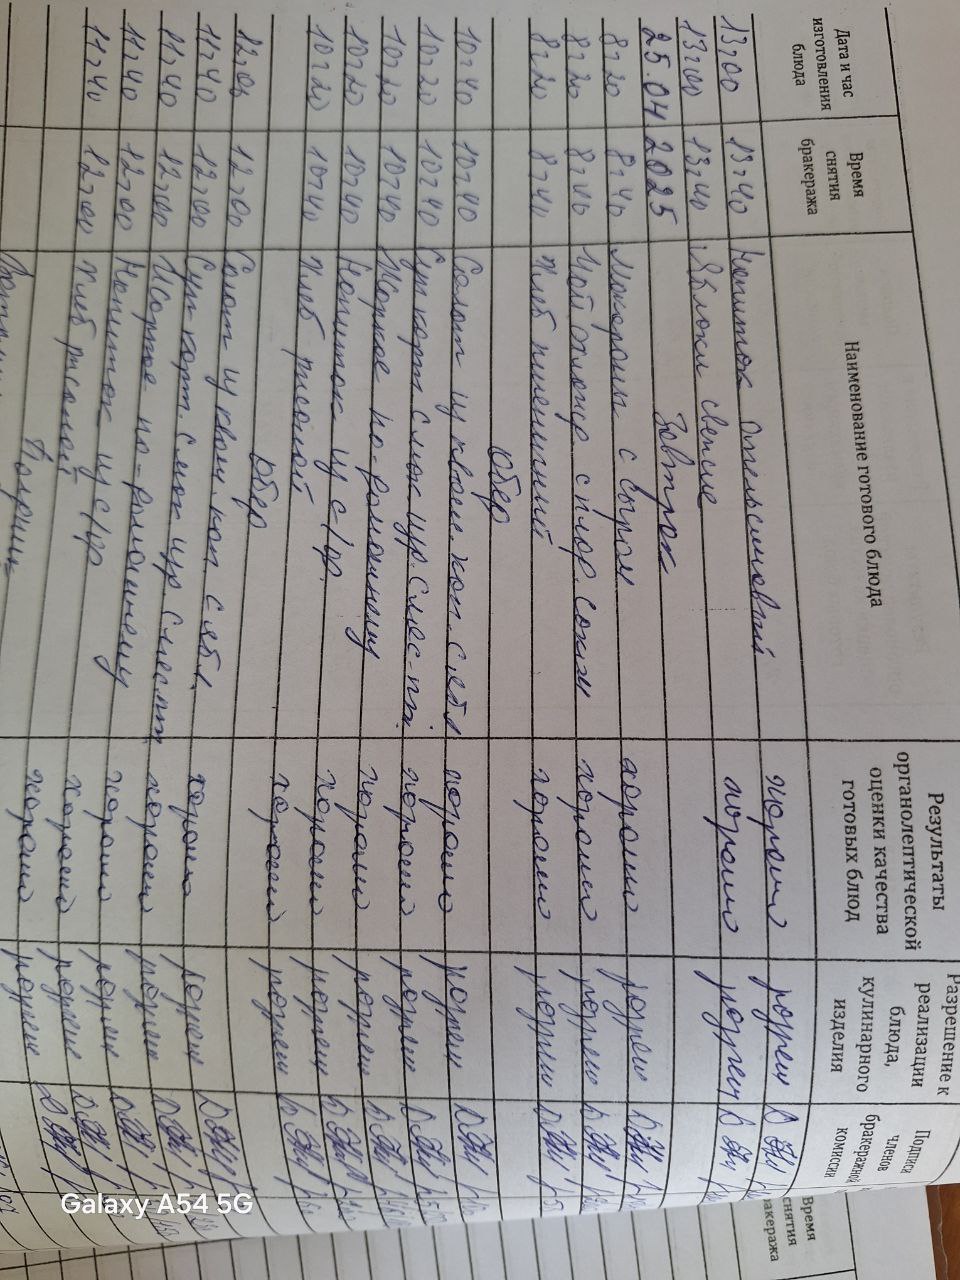 Дата и час изготовления блюда
Время снятия бракеража
Наименование готового блюда
Результаты органолептической оценки качества готовых блюд
Разрешение к реализации блюда, кулинарного изделия
Подписи членов бракеражной комиссии
13:00 13:40 Напиток апельсиновый хорошо разреш
13:00 13:40 Яблоки свежие хорошо разреш
25.04.2025 Завтрак
8:20 8:40 Макароны с сыром хорошо разреш
8:20 8:40 Чай с хорошо разреш
8:20 8:40 Хлеб пшеничный хорошо разреш
Обед
10:40 10:40 Салат из кваш. кап. с ябл хорошо разреш
10:20 10:40 Суп карт с хорошо разреш
10:20 10:40 Жаркое по-домашнему хорошо разреш
10:20 10:40 Напиток из с/фр. хорошо разреш
10:20 10:40 Хлеб ржаной хорошо разреш
Обед
12:00 12:00 Салат из кваш. кап. с ябл. хорошо разреш
11:40 12:00 Суп карт. с хорошо разреш
11:40 12:00 Жаркое по-домашнему хорошо разреш
11:40 12:00 Напиток из с/фр хорошо разреш
11:40 12:00 Хлеб ржаной хорошо разреш
Полдник
Время снятия бракеража
Galaxy A54 5G